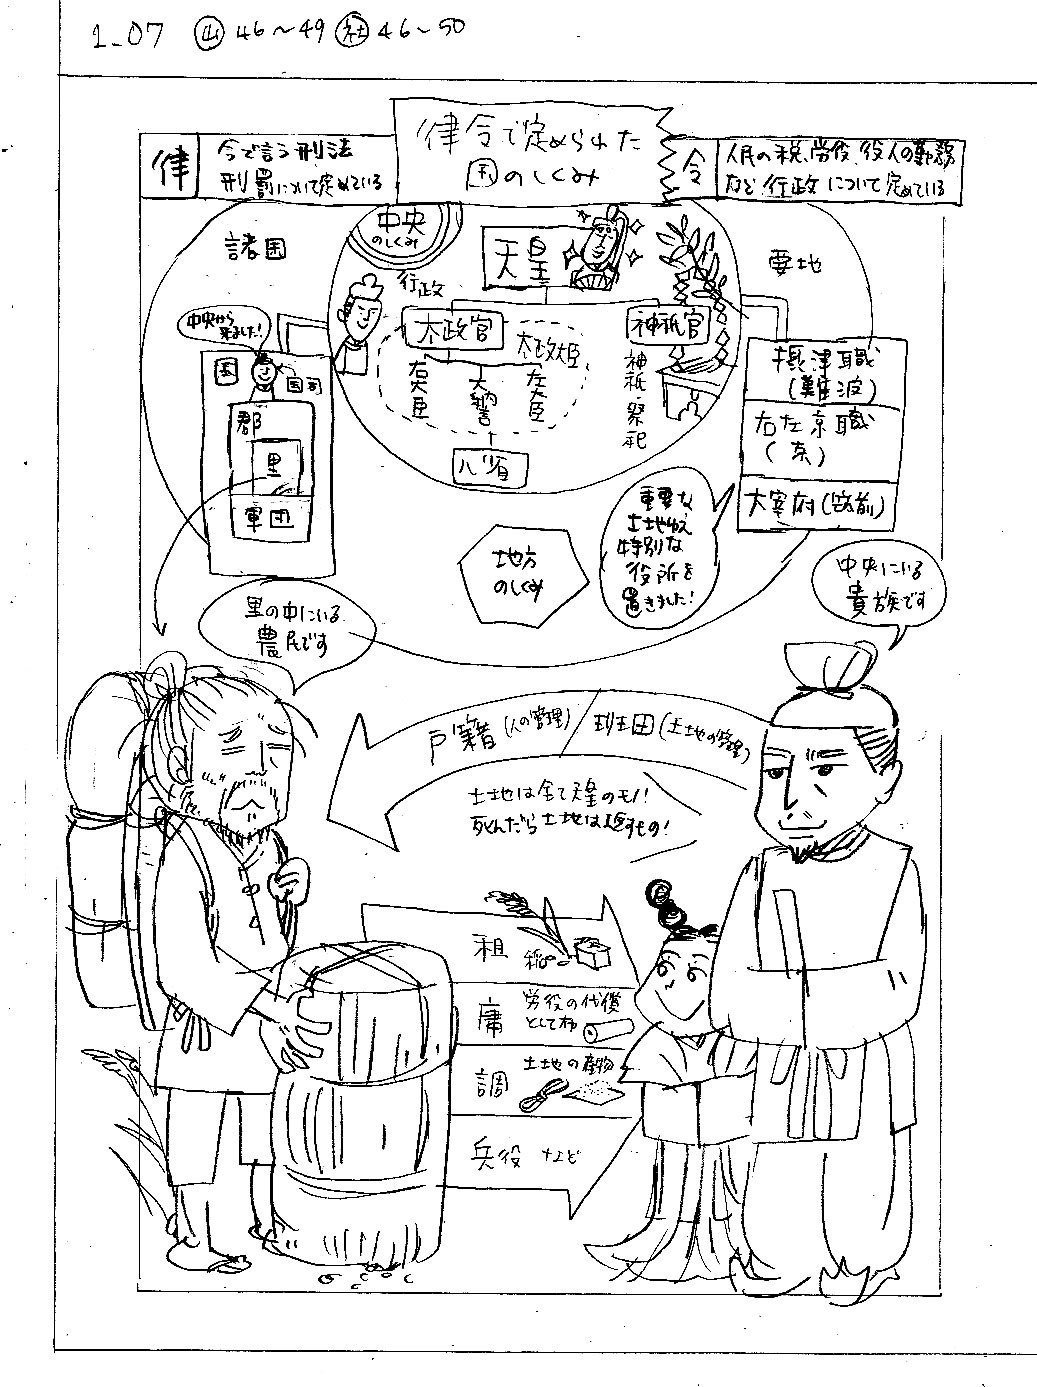 1_07 山 46〜49 社 46〜50
律令で定められた
国のしくみ
律
今で言う刑法
刑罰について定めている
令
人民の税、労役、役人の勤務
など行政について定めている
諸国
中央
のしくみ
天皇
要地
行政
太政官
神祇官
太政大臣
右大臣
大納言
左大臣
神祇・祭祀
八省
中央から
来ました!
国
国司
郡
里
軍団
摂津職
(難波)
右左京職
(京)
大宰府(筑前)
重要な
土地ゆえ
特別な
役所を
置きました!
地方
のしくみ
中央にいる
貴族です
里の中にいる
農民です
戸籍(人の管理)/班田(土地の管理)
土地は全て天皇のモノ!
死んだら土地は返すもの!
租 稲
庸 労役の代償
として布
調 土地の産物
兵役 など